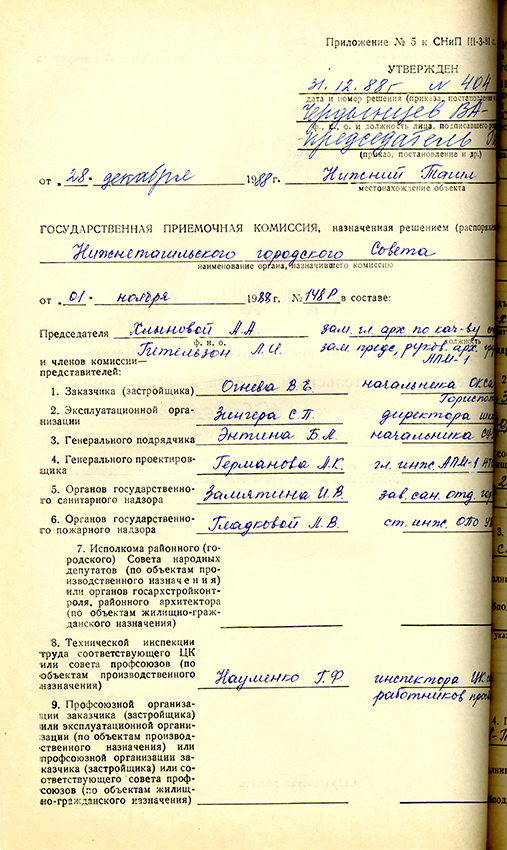 Приложение № 5 к СНиП III-3-81 г.
УТВЕРЖДЕН
31.12.88г № 404
дата и номер решения (приказа, постановлени
Чердынцев ВА-
(ф., и., о. и должность лица, подписавшего
Председатель
(приказ, постановление и др.)
от „28" декабря 1988 г. Нижний Тагил
местонахождение объекта
ГОСУДАРСТВЕННАЯ ПРИЕМОЧНАЯ КОМИССИЯ, назначенная решением (распоряж
Нижнетагильского городского Совета
наименование органа, назначившего комиссию
от „01" ноября 1988 г. № 148Р в составе:
Председателя Хлыновой Л.А. зам. гл. арх по кач-ву
ф. и. о. должность
и членов комиссии— Гительзон Л.И. зам. предс, руков. арх.
представителей: АПМ-1
1. Заказчика (застройщика) Огнева В.Е. начальника ОКСа
Горисполк
2. Эксплуатационной орга-
низации Зингера С.П. директора
3. Генерального подрядчика Энтина Б.Л. начальника
4. Генерального проектиров-
щика Германова А.К. гл. инж. АПМ-1
5. Органов государственно-
го санитарного надзора Замятина И.В. зав. сан. отд.
6. Органов государственно-
го пожарного надзора Гладковой Л.В. ст. инж. ОПО
7. Исполкома районного (го-
родского) Совета народных
депутатов (по объектам про-
изводственного назначения)
или органов госархстройконт-
роля, районного архитектора
(по объектам жилищно-граж-
данского назначения)
8. Технической инспекции
труда соответствующего ЦК
или совета профсоюзов (по
объектам производственного
назначения) Науменко Г.Ф инспектора ЦК
работников
9. Профсоюзной организа-
ции заказчика (застройщика)
или эксплуатационной органи-
зации (по объектам производ-
ственного назначения) или
профсоюзной организации за-
казчика (застройщика) или со-
ответствующего совета проф-
союзов (по объектам жилищ-
но-гражданского назначения)